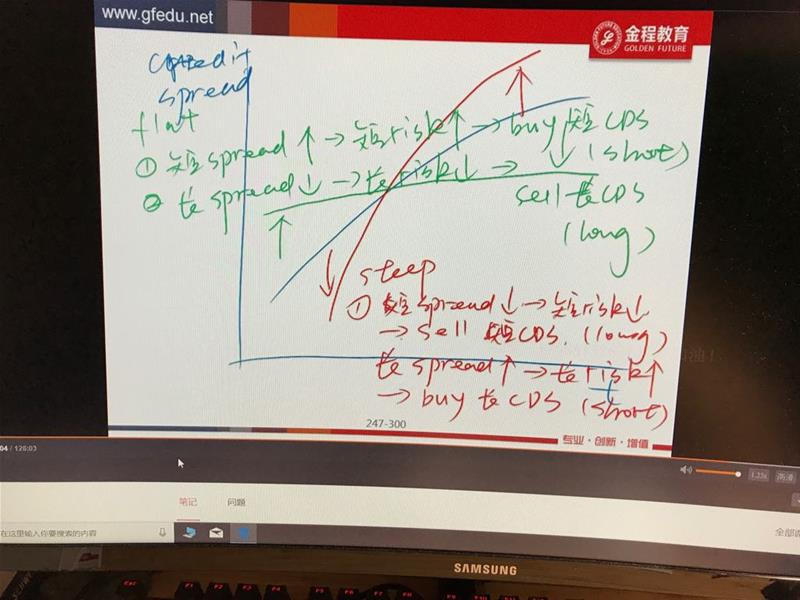 www.gfedu.net
金程教育
GOLDEN FUTURE
credit
spread
flat
① 短spread↑→短risk↑→buy短CDS
(short)
② 长spread↓→长risk↓→
sell长CDS
(long)
steep
① 短spread↓→短risk↓
→sell 短CDS. (long)
长spread↑→长risk↑
→buy长CDS (short)
247-300
专业·创新·增值
04 / 126:03
1.25x
高清
笔记 问题
在这里输入你要搜索的内容
SAMSUNG
Esc F1 F2 F3 F4 F5 F6 F7 F8